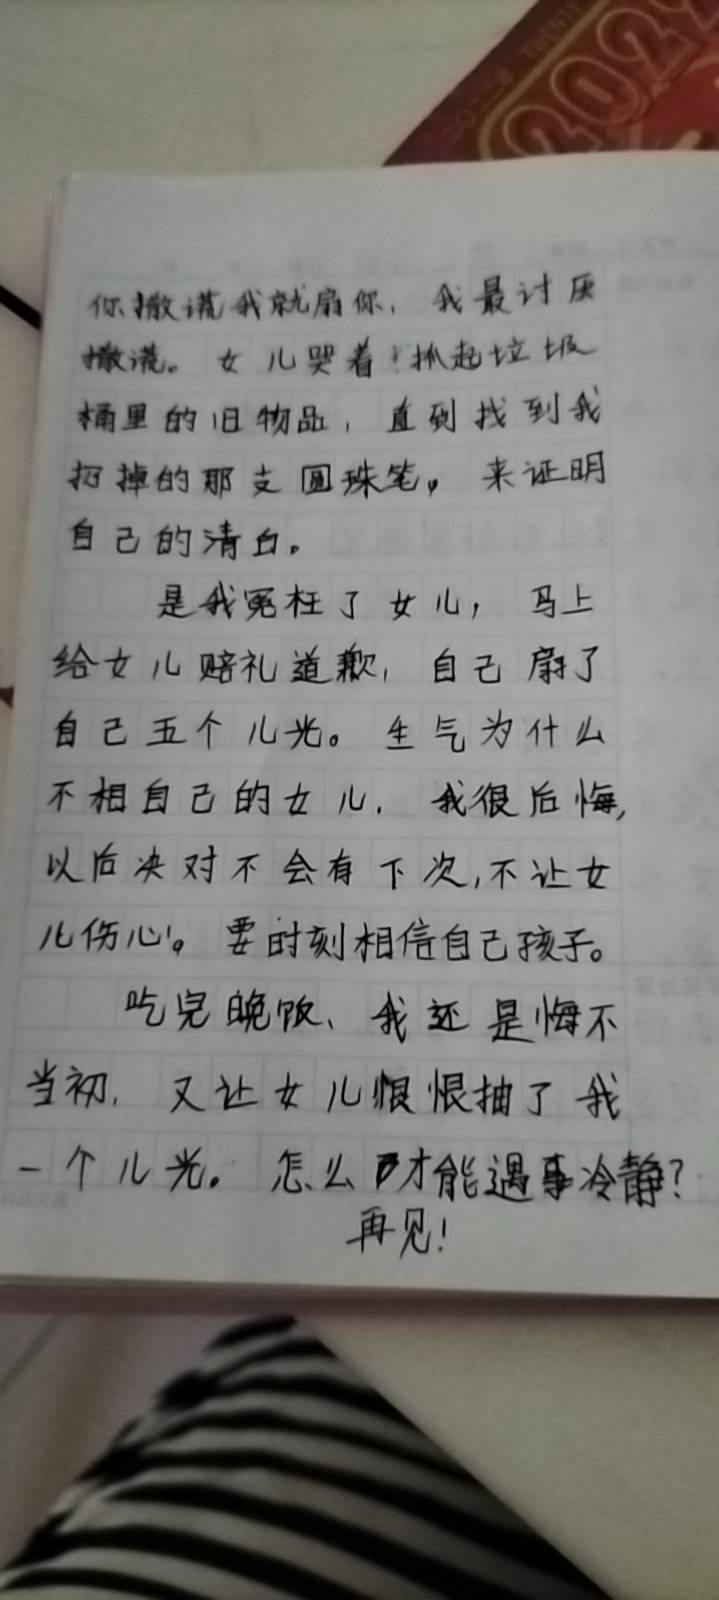 二〇二二年 TWENTY
2022
你撒谎我就扇你，我最讨厌
撒谎。女儿哭着！抓起垃圾
桶里的旧物品，直到找到我
扔掉的那支圆珠笔，来证明
自己的清白。
是我冤枉了女儿，马上
给女儿赔礼道歉，自己扇了
自己五个儿光。生气为什么
不相自己的女儿．我很后悔，
以后决对不会有下次，不让女
儿伤心。要时刻相信自己孩子。
吃完晚饭、我还是悔不
当初．又让女儿恨恨抽了我
一个儿光。怎么才能遇事冷静？
再见！